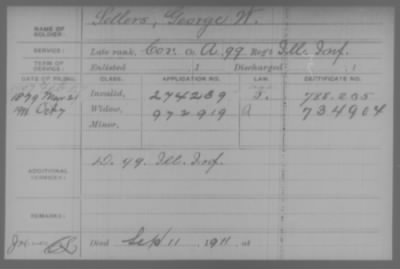 NAME OF SOLDIER: Sellers, George W.
SERVICE: Late rank, Cor. Co. A. 99 Reg't Ill. Inf.
TERM OF SERVICE: Enlisted 1 Discharged 1
DATE OF FILING. CLASS. APPLICATION NO. LAW. CERTIFICATE NO.
1879 Mar 21 Invalid, 274239 788.235
1911 Oct 7 Widow, 972919 A 734904
Minor,
ADDITIONAL SERVICES: D. 99. Ill. Inf.
REMARKS:
Died Sep 11, 1911 at